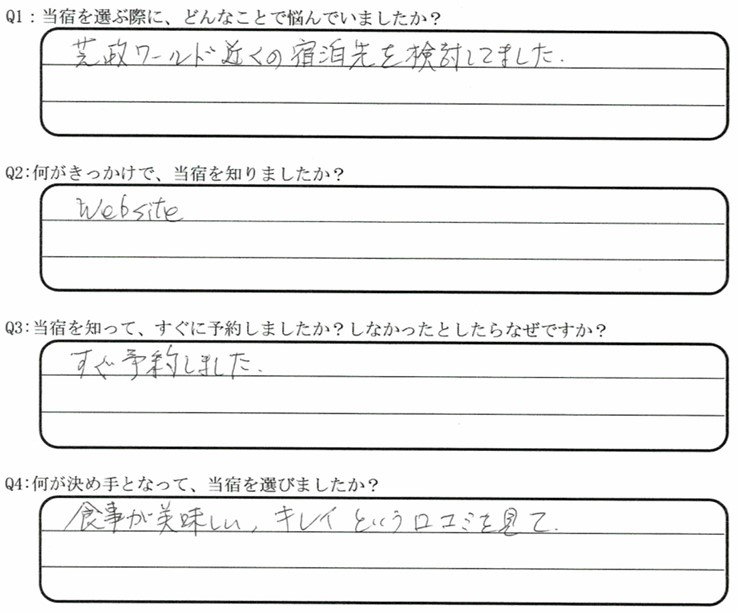 Q1：当宿を選ぶ際に、どんなことで悩んでいましたか？
芝政ワールド近くの宿泊先を検討してました.
Q2:何がきっかけで、当宿を知りましたか？
Website
Q3:当宿を知って、すぐに予約しましたか？しなかったとしたらなぜですか？
すぐ予約しました.
Q4:何が決め手となって、当宿を選びましたか？
食事が美味しい, キレイという口コミを見て.